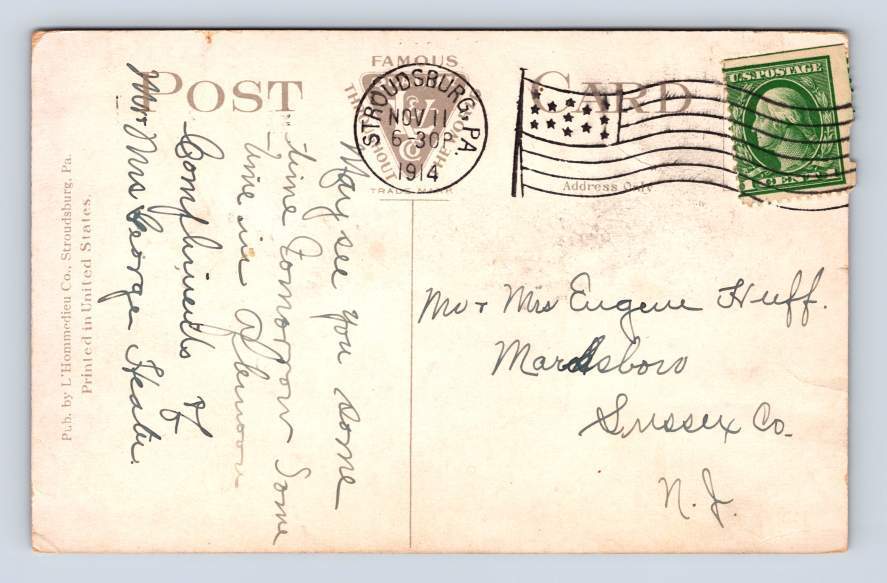 POST CARD
FAMOUS
THROUGHOUT THE WORLD
TRADE MARK
STROUDSBURG, PA.
NOV 11
6-30P
1914
U.S. POSTAGE
1 CENT 1
Address Only
May see you some
time Tomorrow Some
time in afternoon
Compliments of
Mr + Mrs George
Mr + Mrs Eugene Huff.
Marksboro
Sussex Co.
N. J.
Pub. by L'Hommedieu Co., Stroudsburg, Pa.
Printed in United States.